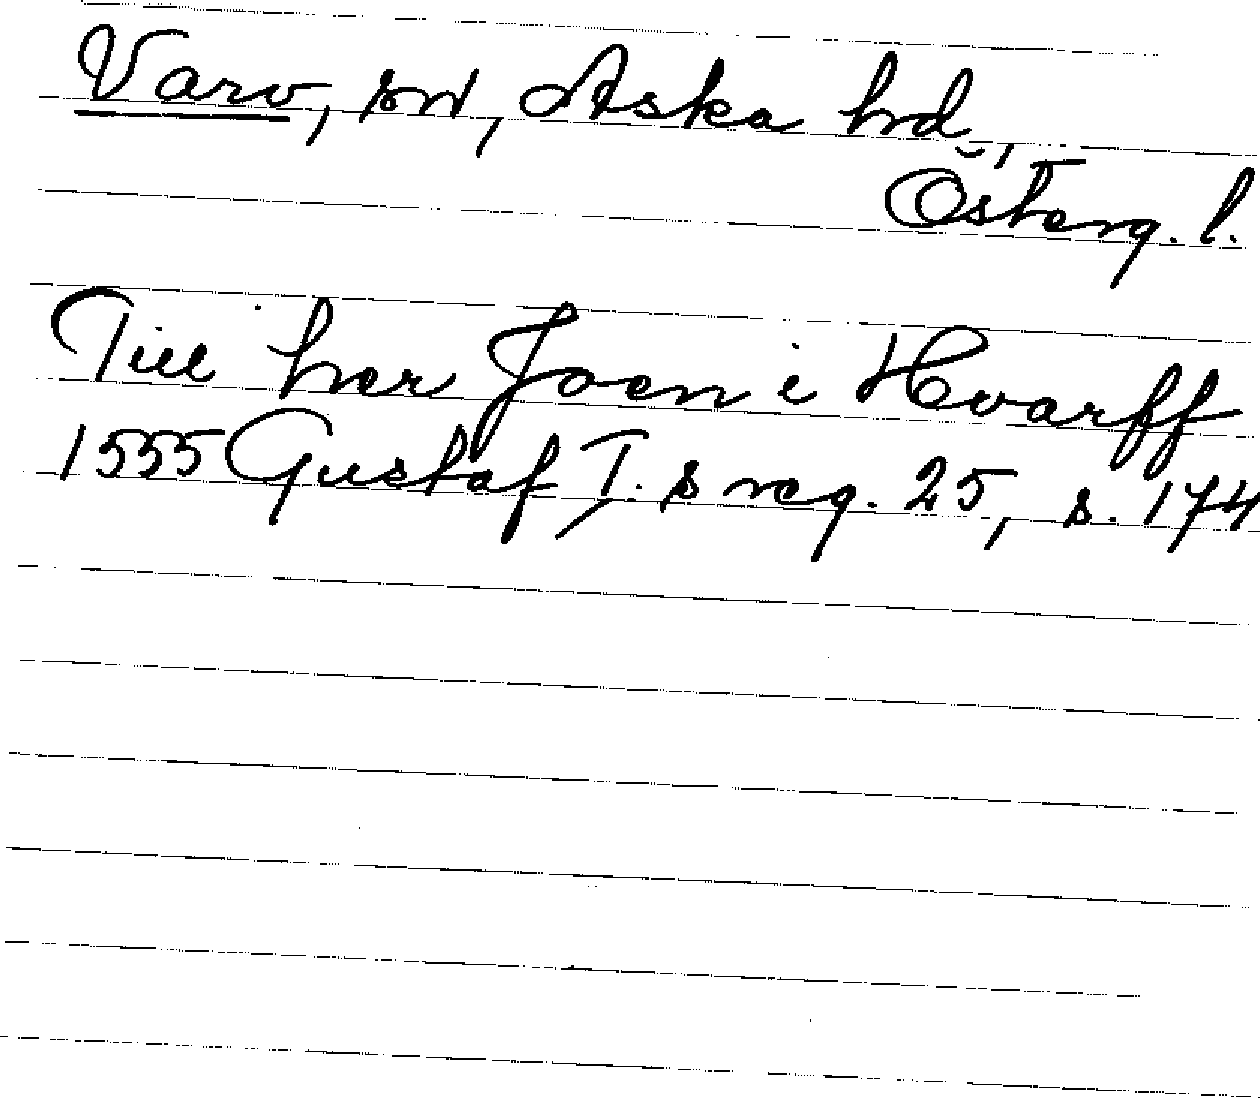 Varv, sn, Aska hd,
Österg. l.
Till her Joen i Hvarff
1555 Gustaf I.s reg. 25, s. 174